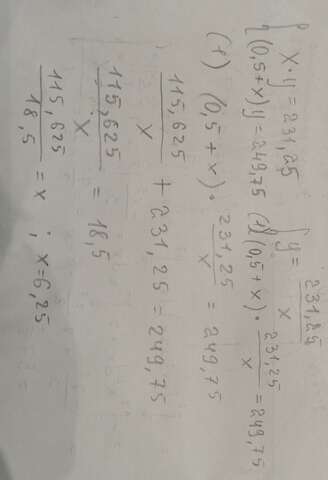 { x·y = 231,25 { y = 231,25 / x
{ (0,5+x)y = 249,75 (1) { (0,5+x) · 231,25 / x = 249,75
(1) (0,5+x) · 231,25 / x = 249,75
115,625 / x + 231,25 = 249,75
115,625 / x = 18,5
115,625 / 18,5 = x ; x=6,25